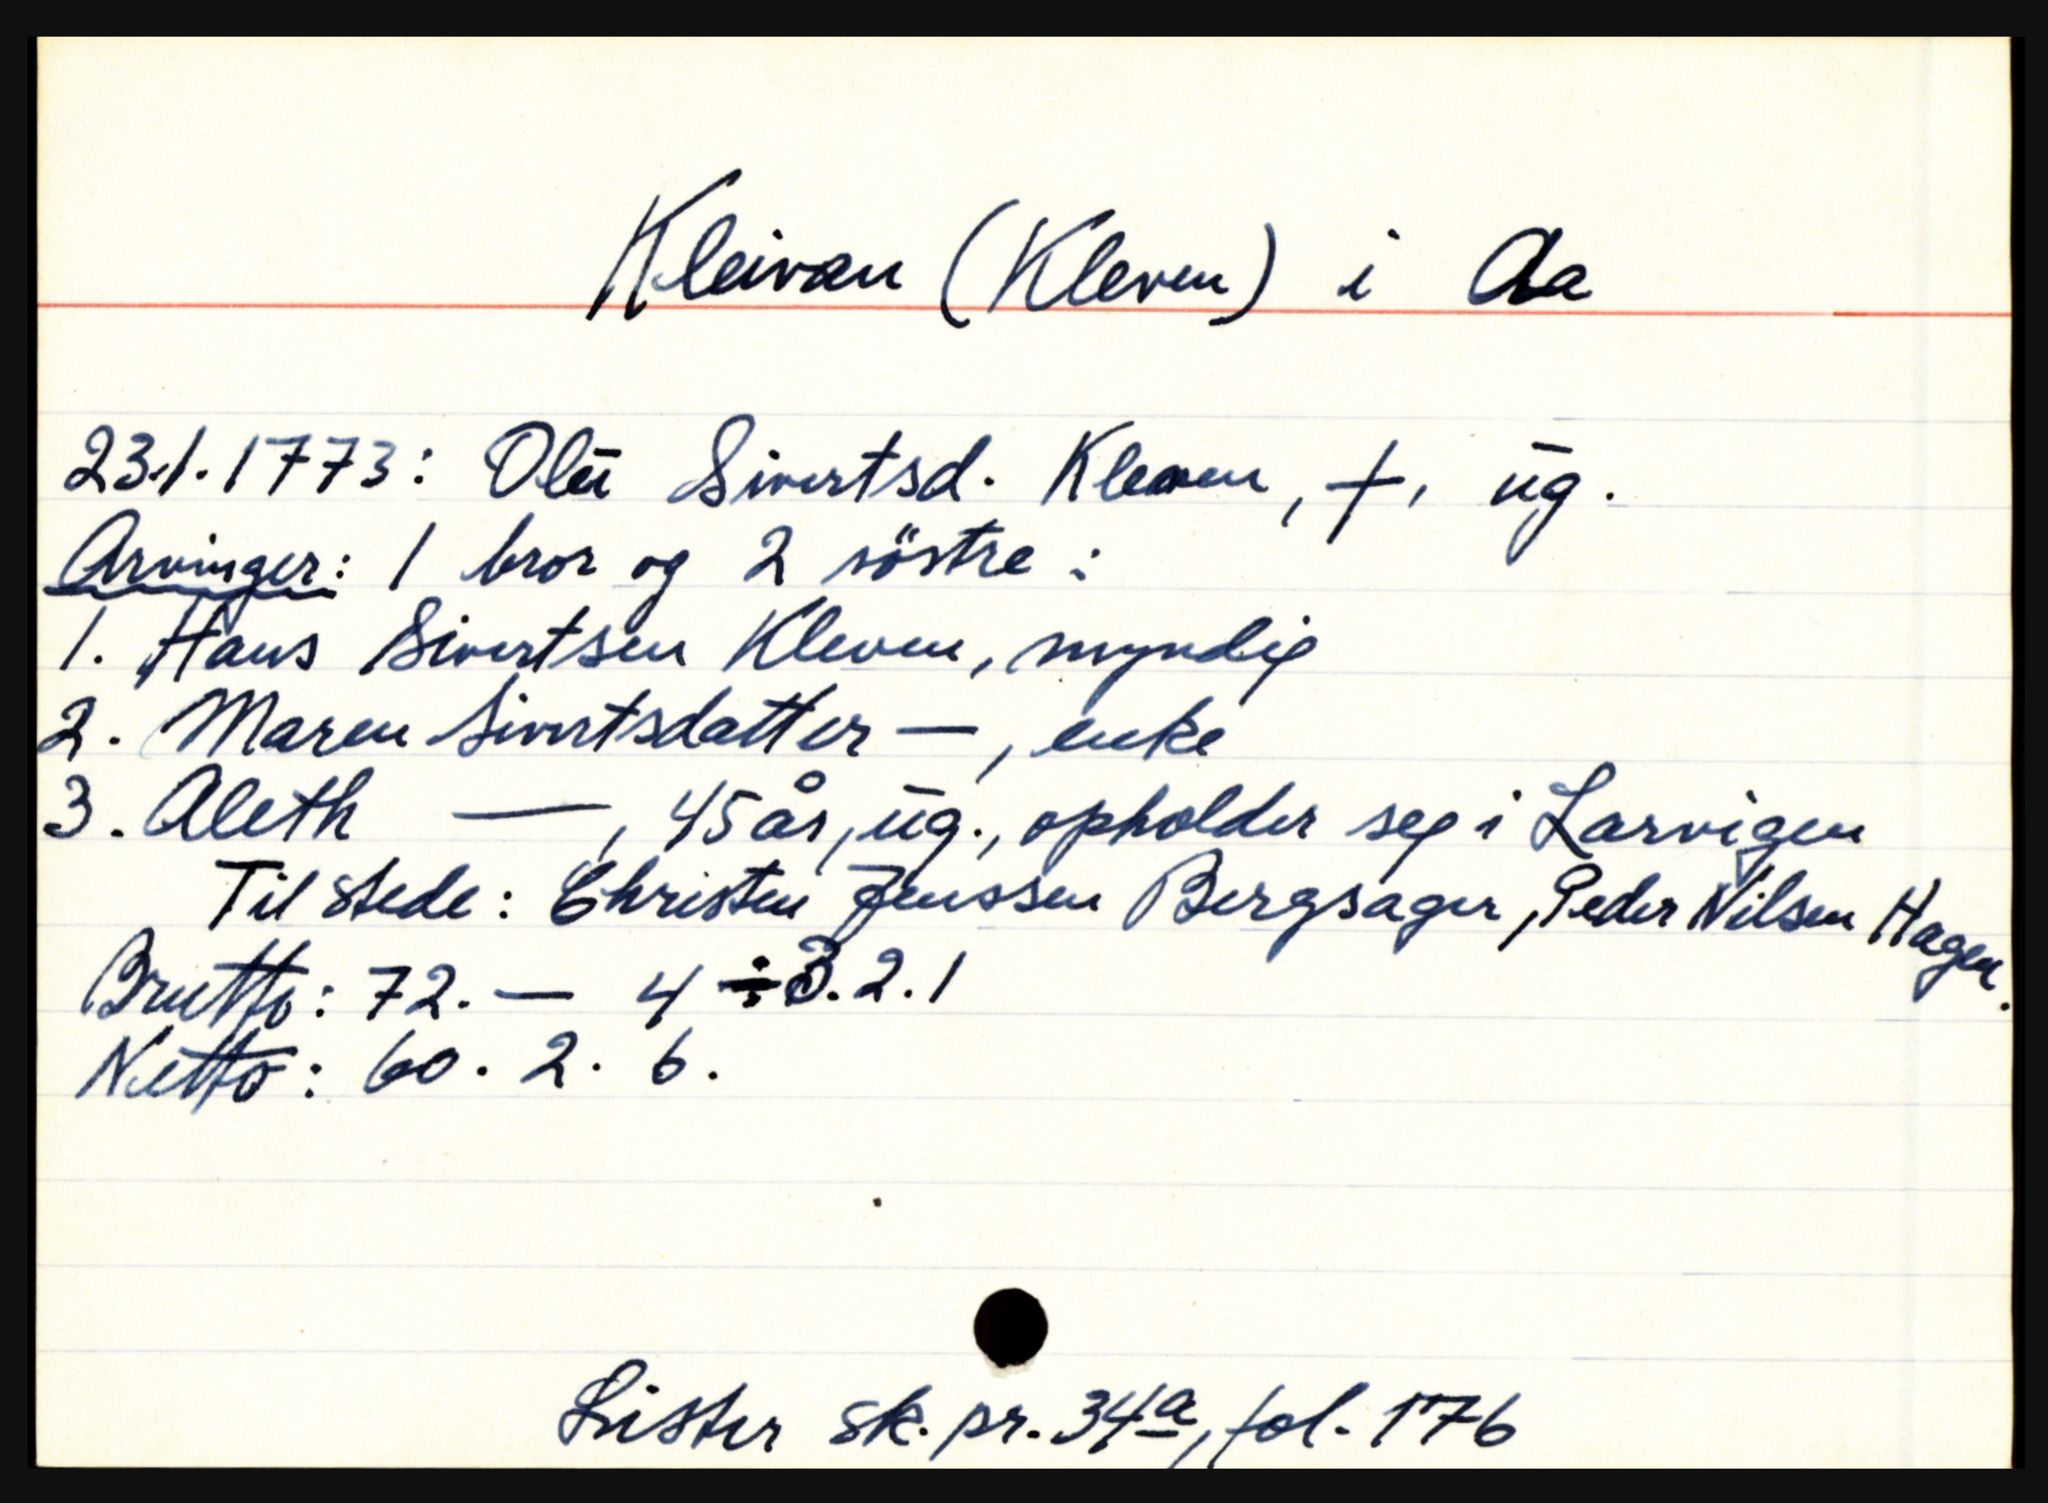 Kleivan (Kleven) i Aa
23.1.1773: Olu Sivertsd. Kleven, +, ūg.
Arvinger: 1 bror og 2 söstre:
1. Hans Sivertsen Kleven, myndig
2. Maren Sivertsdatter —, enke
3. Aleth —, 45 år, ūg., opholder seg i Larvigen
Til stede: Christen Jenssen Bergsager, Peder Nilsen Hagen.
Brutto: 72. — 4 ÷ 3.2.1
Netto: 60. 2. 6.
Lister sk. pr. 34a, fol. 176